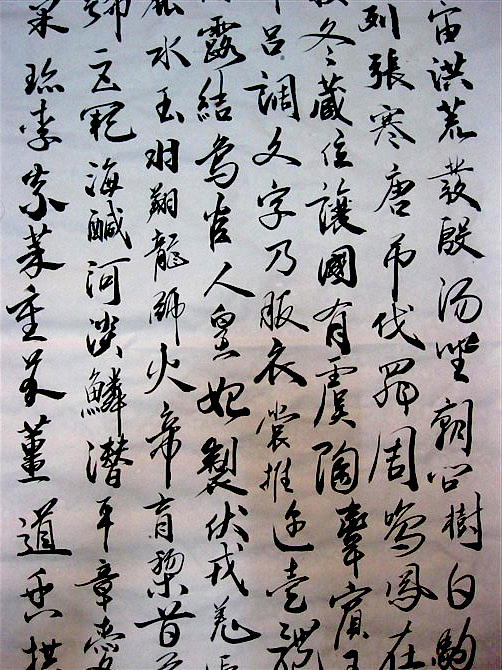 宙洪荒發殷湯坐朝問樹白駒
列張寒唐弔伐罪周鳴鳳在
冬藏位讓國有虞陶率賓王
呂調文字乃服衣裳推邇壹體
露結為官人皇始製伏戎羌
水玉羽翔龍師火帝育黎首
號巨闕海鹹河淡鱗潛平章愛
果珍李柰菜重芥薑道垂拱